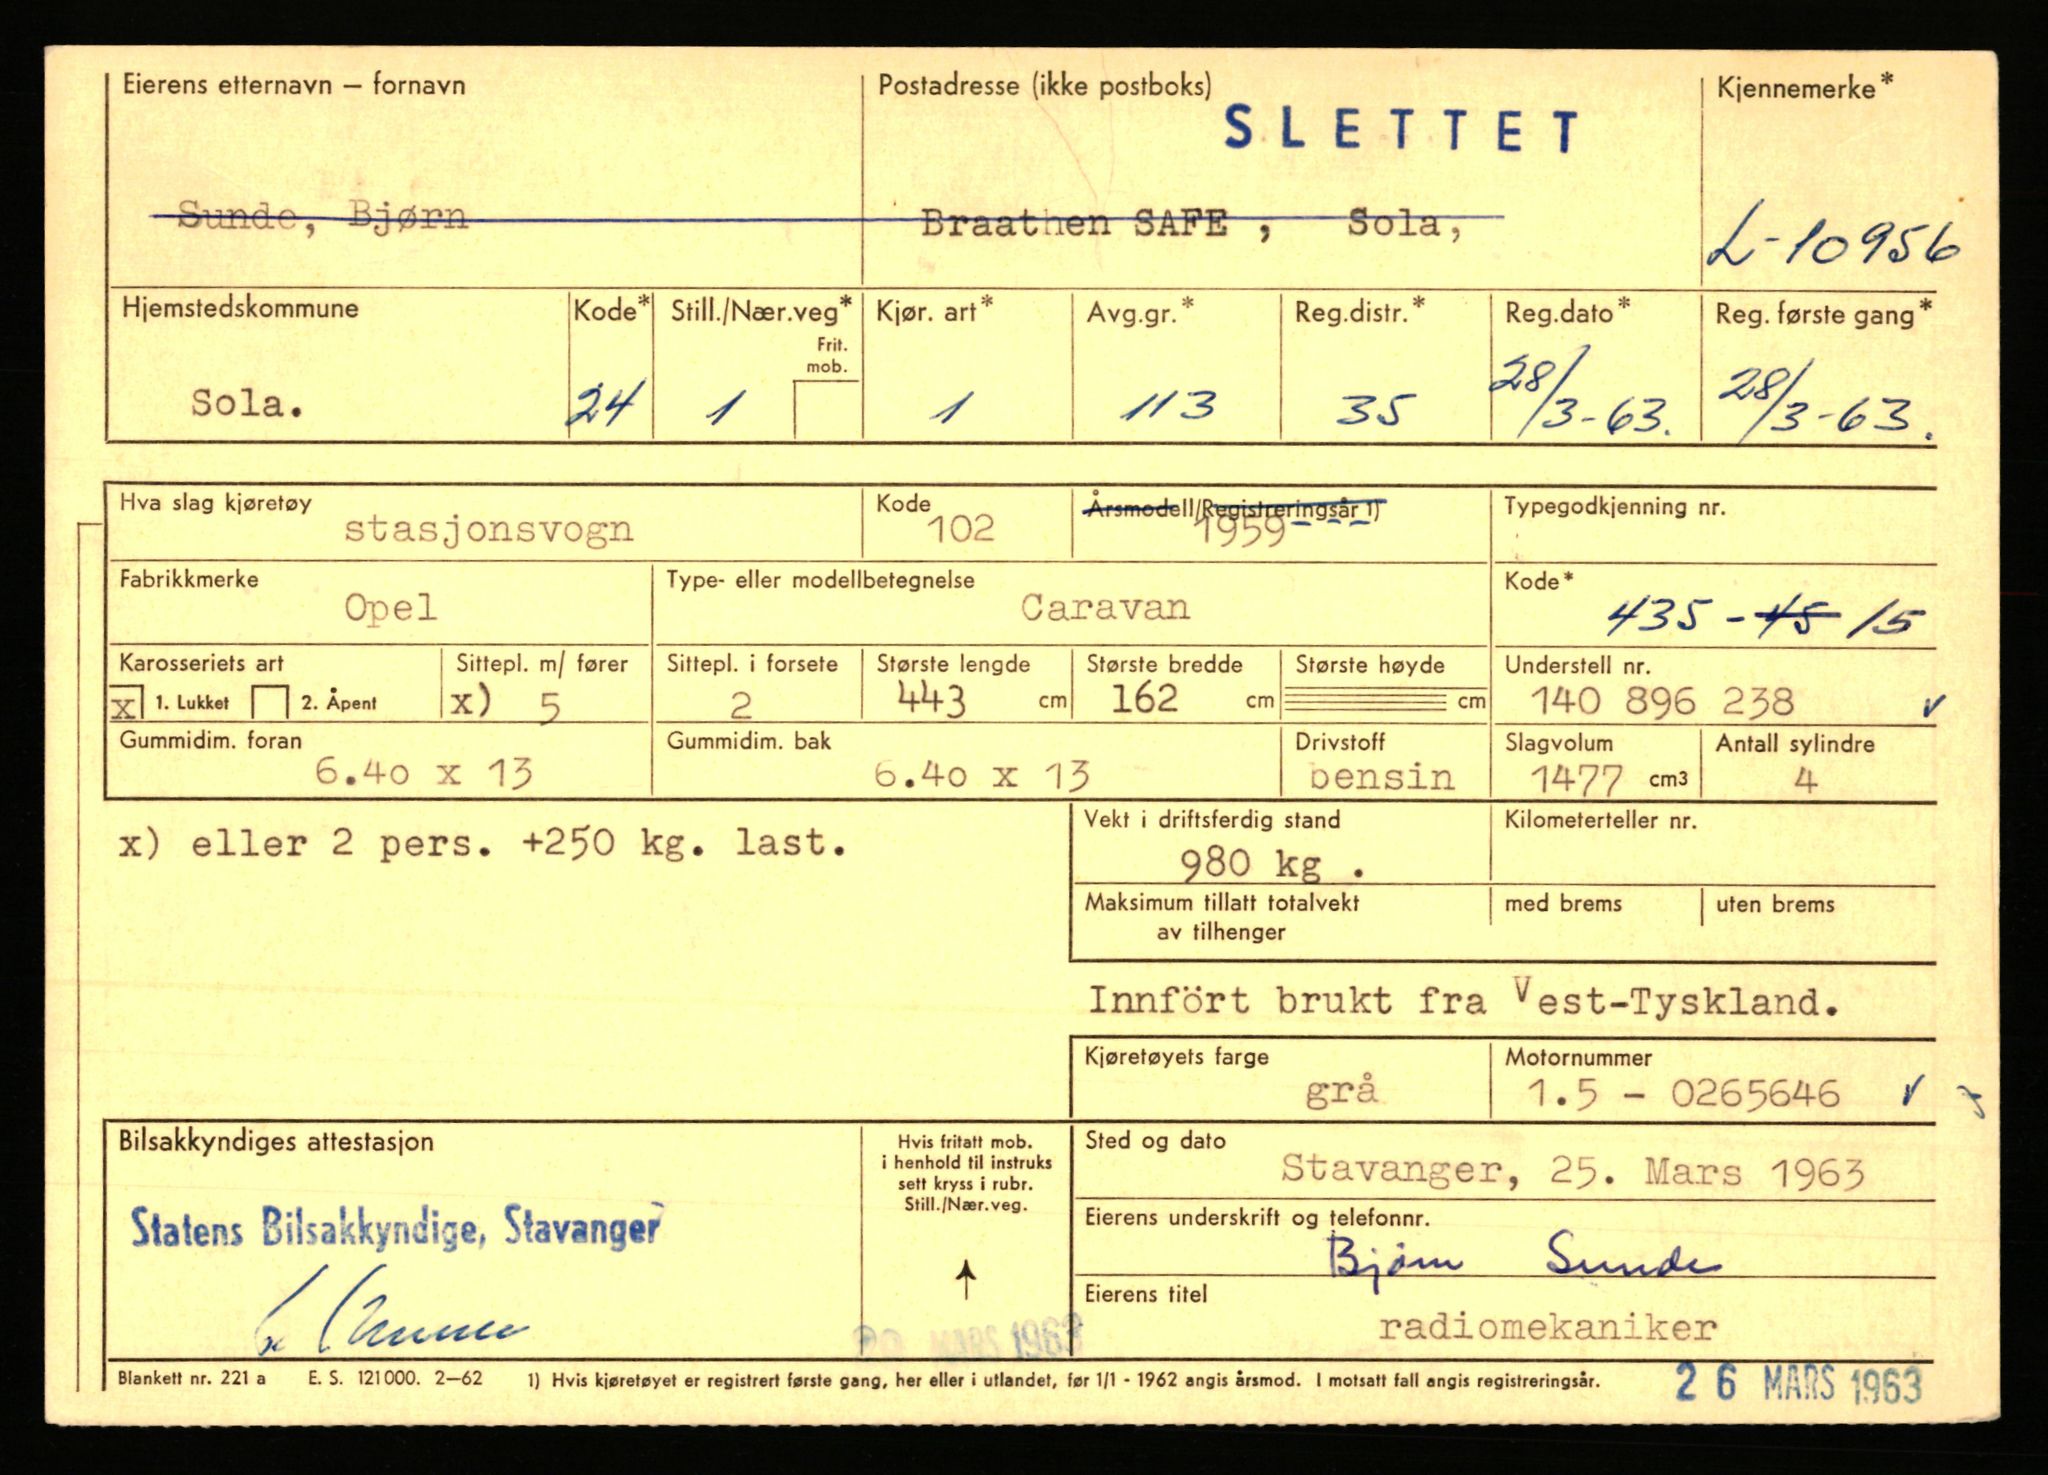 Eierens etternavn – fornavn
Postadresse (ikke postboks)
Kjennemerke*
SLETTET
Sunde, Bjørn
Braathen SAFE , Sola,
L-10956
Hjemstedskommune
Kode*
Still./Nær.veg*
Frit.
mob.
Kjør. art*
Avg.gr.*
Reg.distr.*
Reg.dato*
Reg. første gang*
Sola.
24
1
1
113
35
28/3-63.
28/3-63.
Hva slag kjøretøy
stasjonsvogn
Kode
102
Årsmodell/Registreringsår 1)
1959
Typegodkjenning nr.
Fabrikkmerke
Opel
Type- eller modellbetegnelse
Caravan
Kode*
435-45 15
Karosseriets art
x 1. Lukket 2. Åpent
Sittepl. m/ fører
x) 5
Sittepl. i forsete
2
Største lengde
443 cm
Største bredde
162 cm
Største høyde
cm
Understell nr.
140 896 238
Gummidim. foran
6.40 x 13
Gummidim. bak
6.40 x 13
Drivstoff
bensin
Slagvolum
1477 cm3
Antall sylindre
4
x) eller 2 pers. +250 kg. last.
Vekt i driftsferdig stand
980 kg .
Kilometerteller nr.
Maksimum tillatt totalvekt
av tilhenger
med brems
uten brems
Innfört brukt fra Vest-Tyskland.
Kjøretøyets farge
grå
Motornummer
1.5 - 0265646
Bilsakkyndiges attestasjon
Statens Bilsakkyndige, Stavanger
Hvis fritatt mob.
i henhold til instruks
sett kryss i rubr.
Still./Nær.veg.
MARS 1963
Sted og dato
Stavanger, 25. Mars 1963
Eierens underskrift og telefonnr.
Bjørn Sunde
Eierens titel
radiomekaniker
Blankett nr. 221 a E. S. 121000. 2–62
1) Hvis kjøretøyet er registrert første gang, her eller i utlandet, før 1/1 - 1962 angis årsmod. I motsatt fall angis registreringsår.
26 MARS 1963